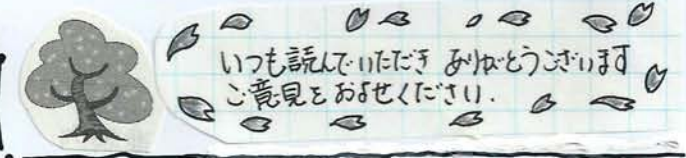 いつも読んでいただき ありがとうございます
ご意見を およせください.